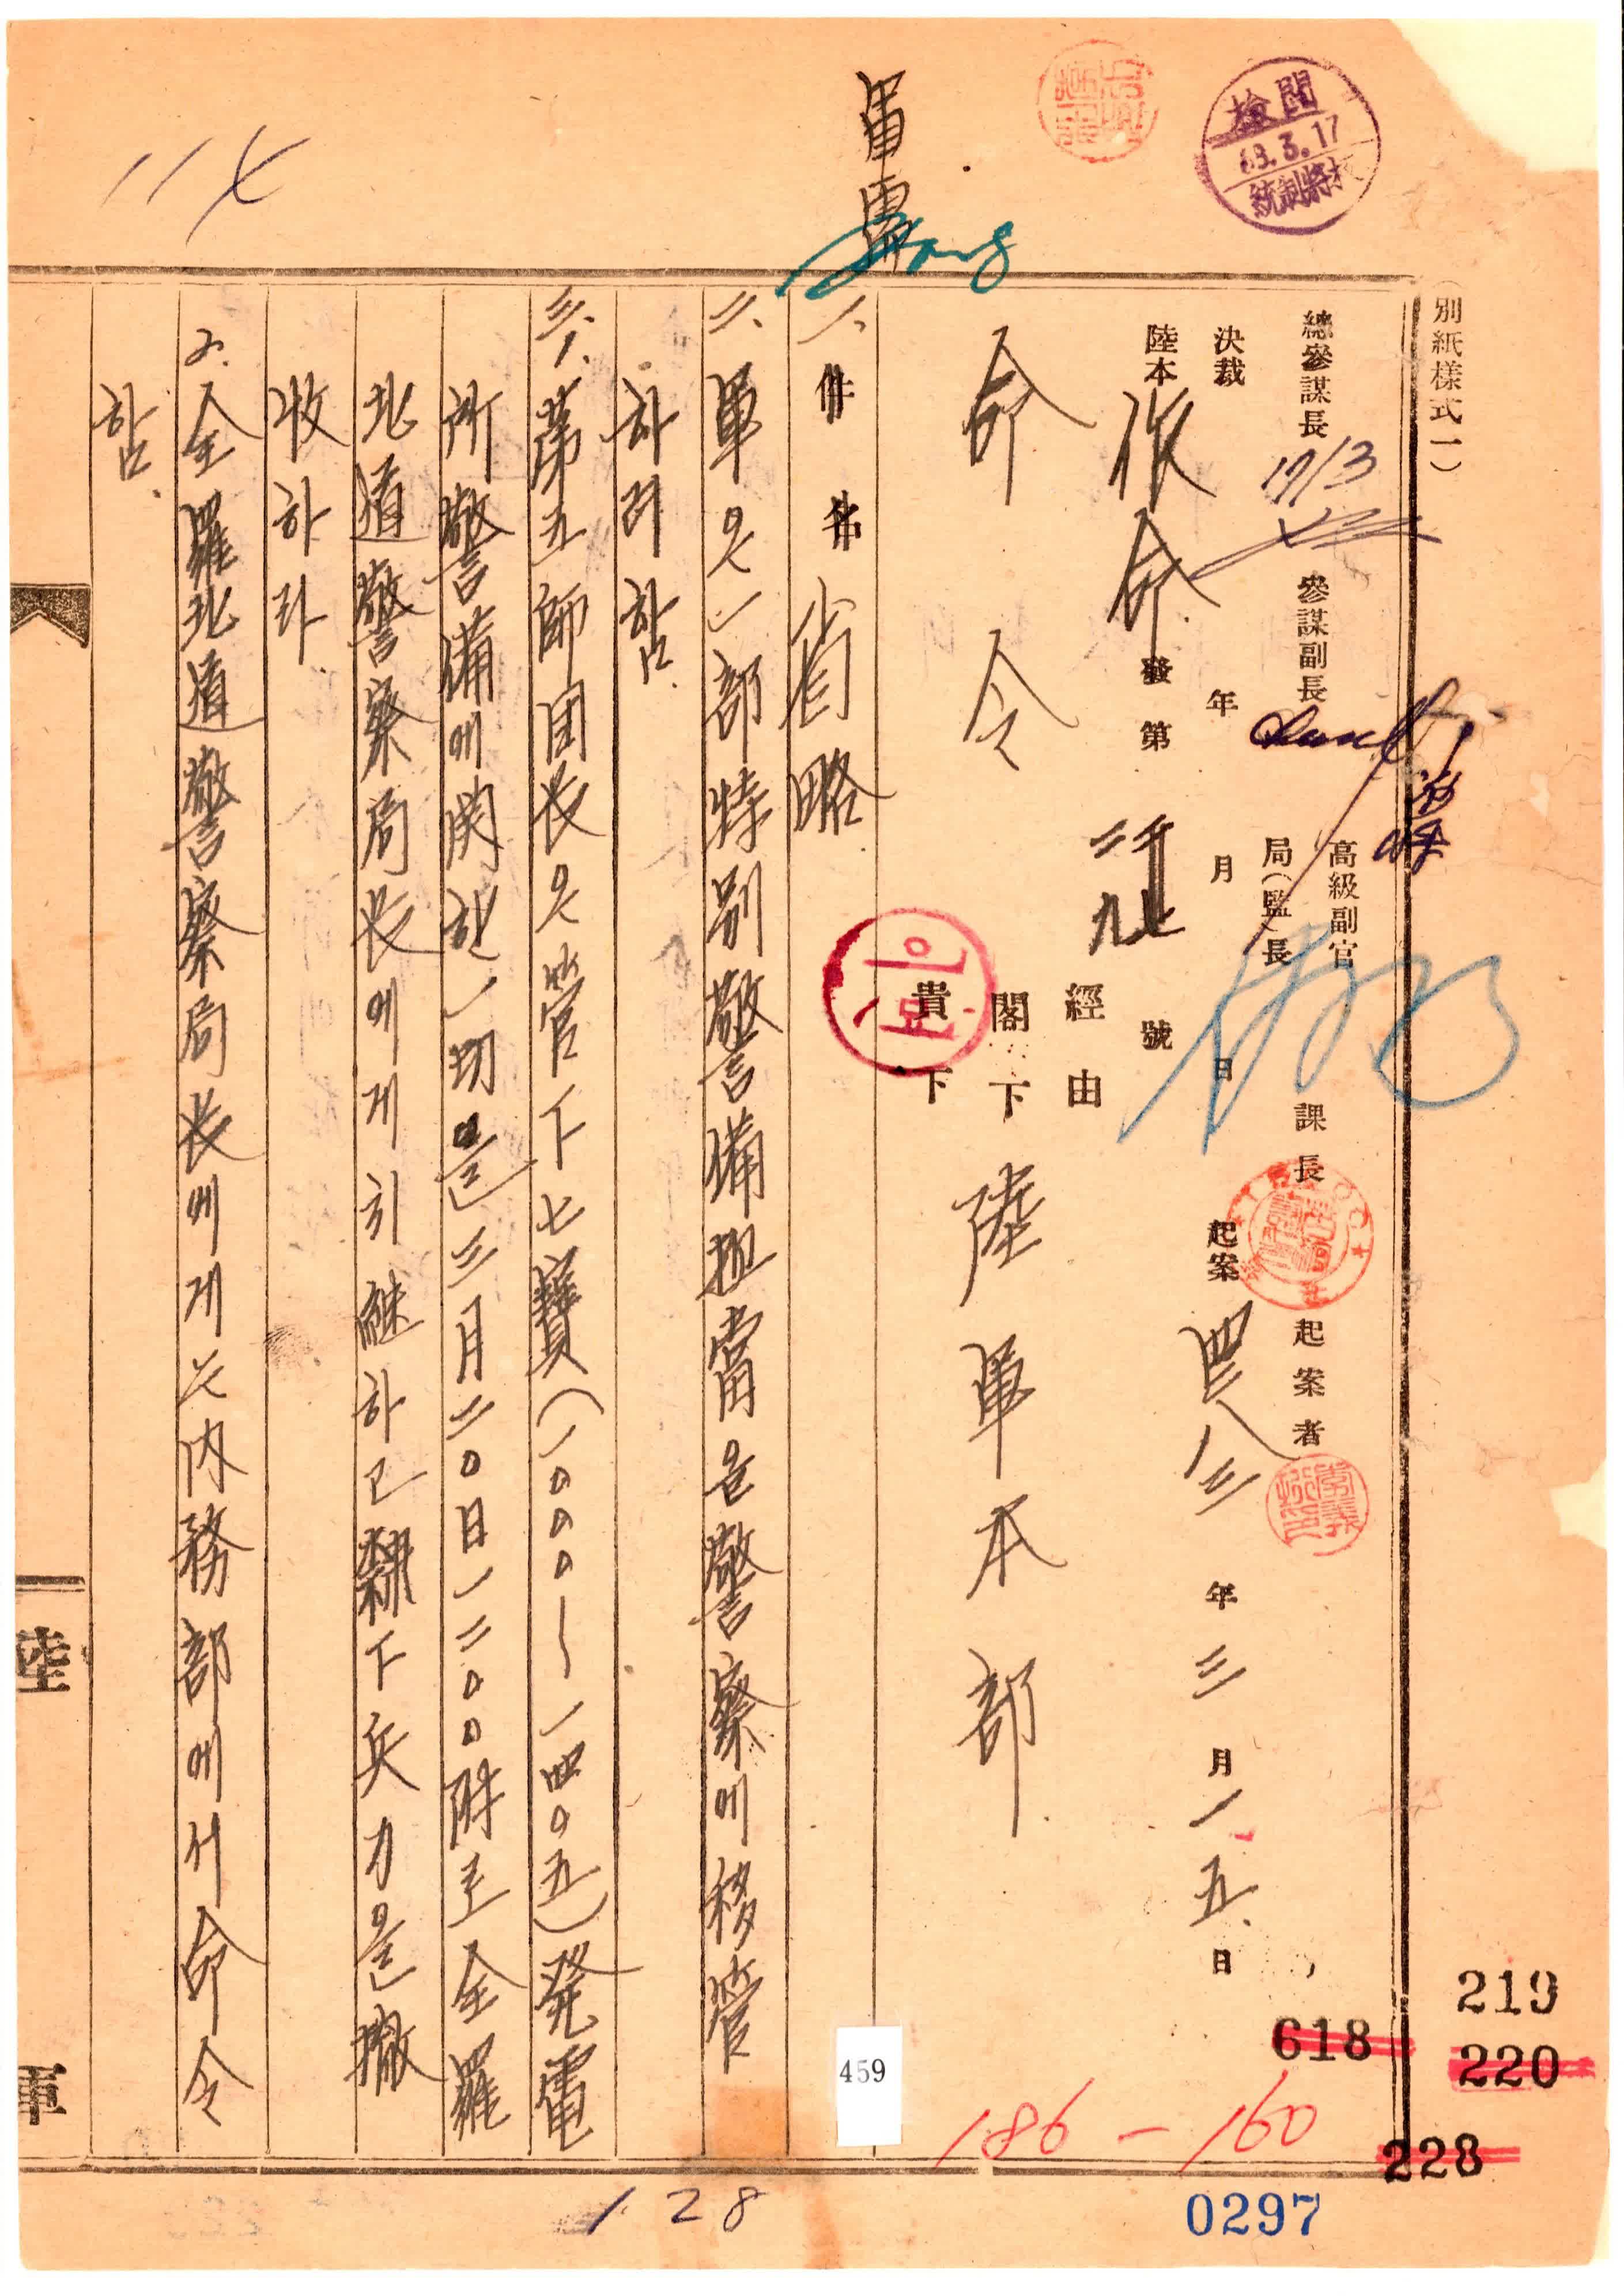 (別紙樣式一)
總參謀長 17/3 參謀副長 高級副官 局(監)長 課長 起案者
決裁 年 月 日 起案 四二八三年三月一五日
陸本作命發第 號
經由
閣下
貴下
命令 陸軍本部
一、件名 省略
二、軍은 一部特別警備担當을 警察에 移管
하려 함.
三、1. 第五師団長은 管下七寶(一000~一四0五)発電
所警備에 関한 一切을 三月二0日一二00時로 全羅
北道警察局長에게 引継하고 隸下兵力을 撤
收하라
2. 全羅北道警察局長에게는 内務部에서 命令
함.
檢閱
83.3.17
軍電
117
219
618
220
228
459
186-160
0297
128
陸
軍